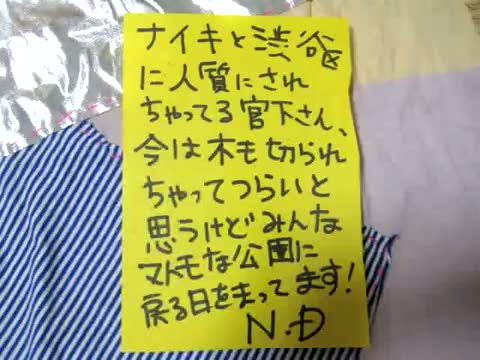 ナイキと渋谷区
に人質にされ
ちゃってる宮下さん、
今は木も切られ
ちゃってつらいと
思うけどみんな
マトモな公園に
戻る日をまってます!
N.D